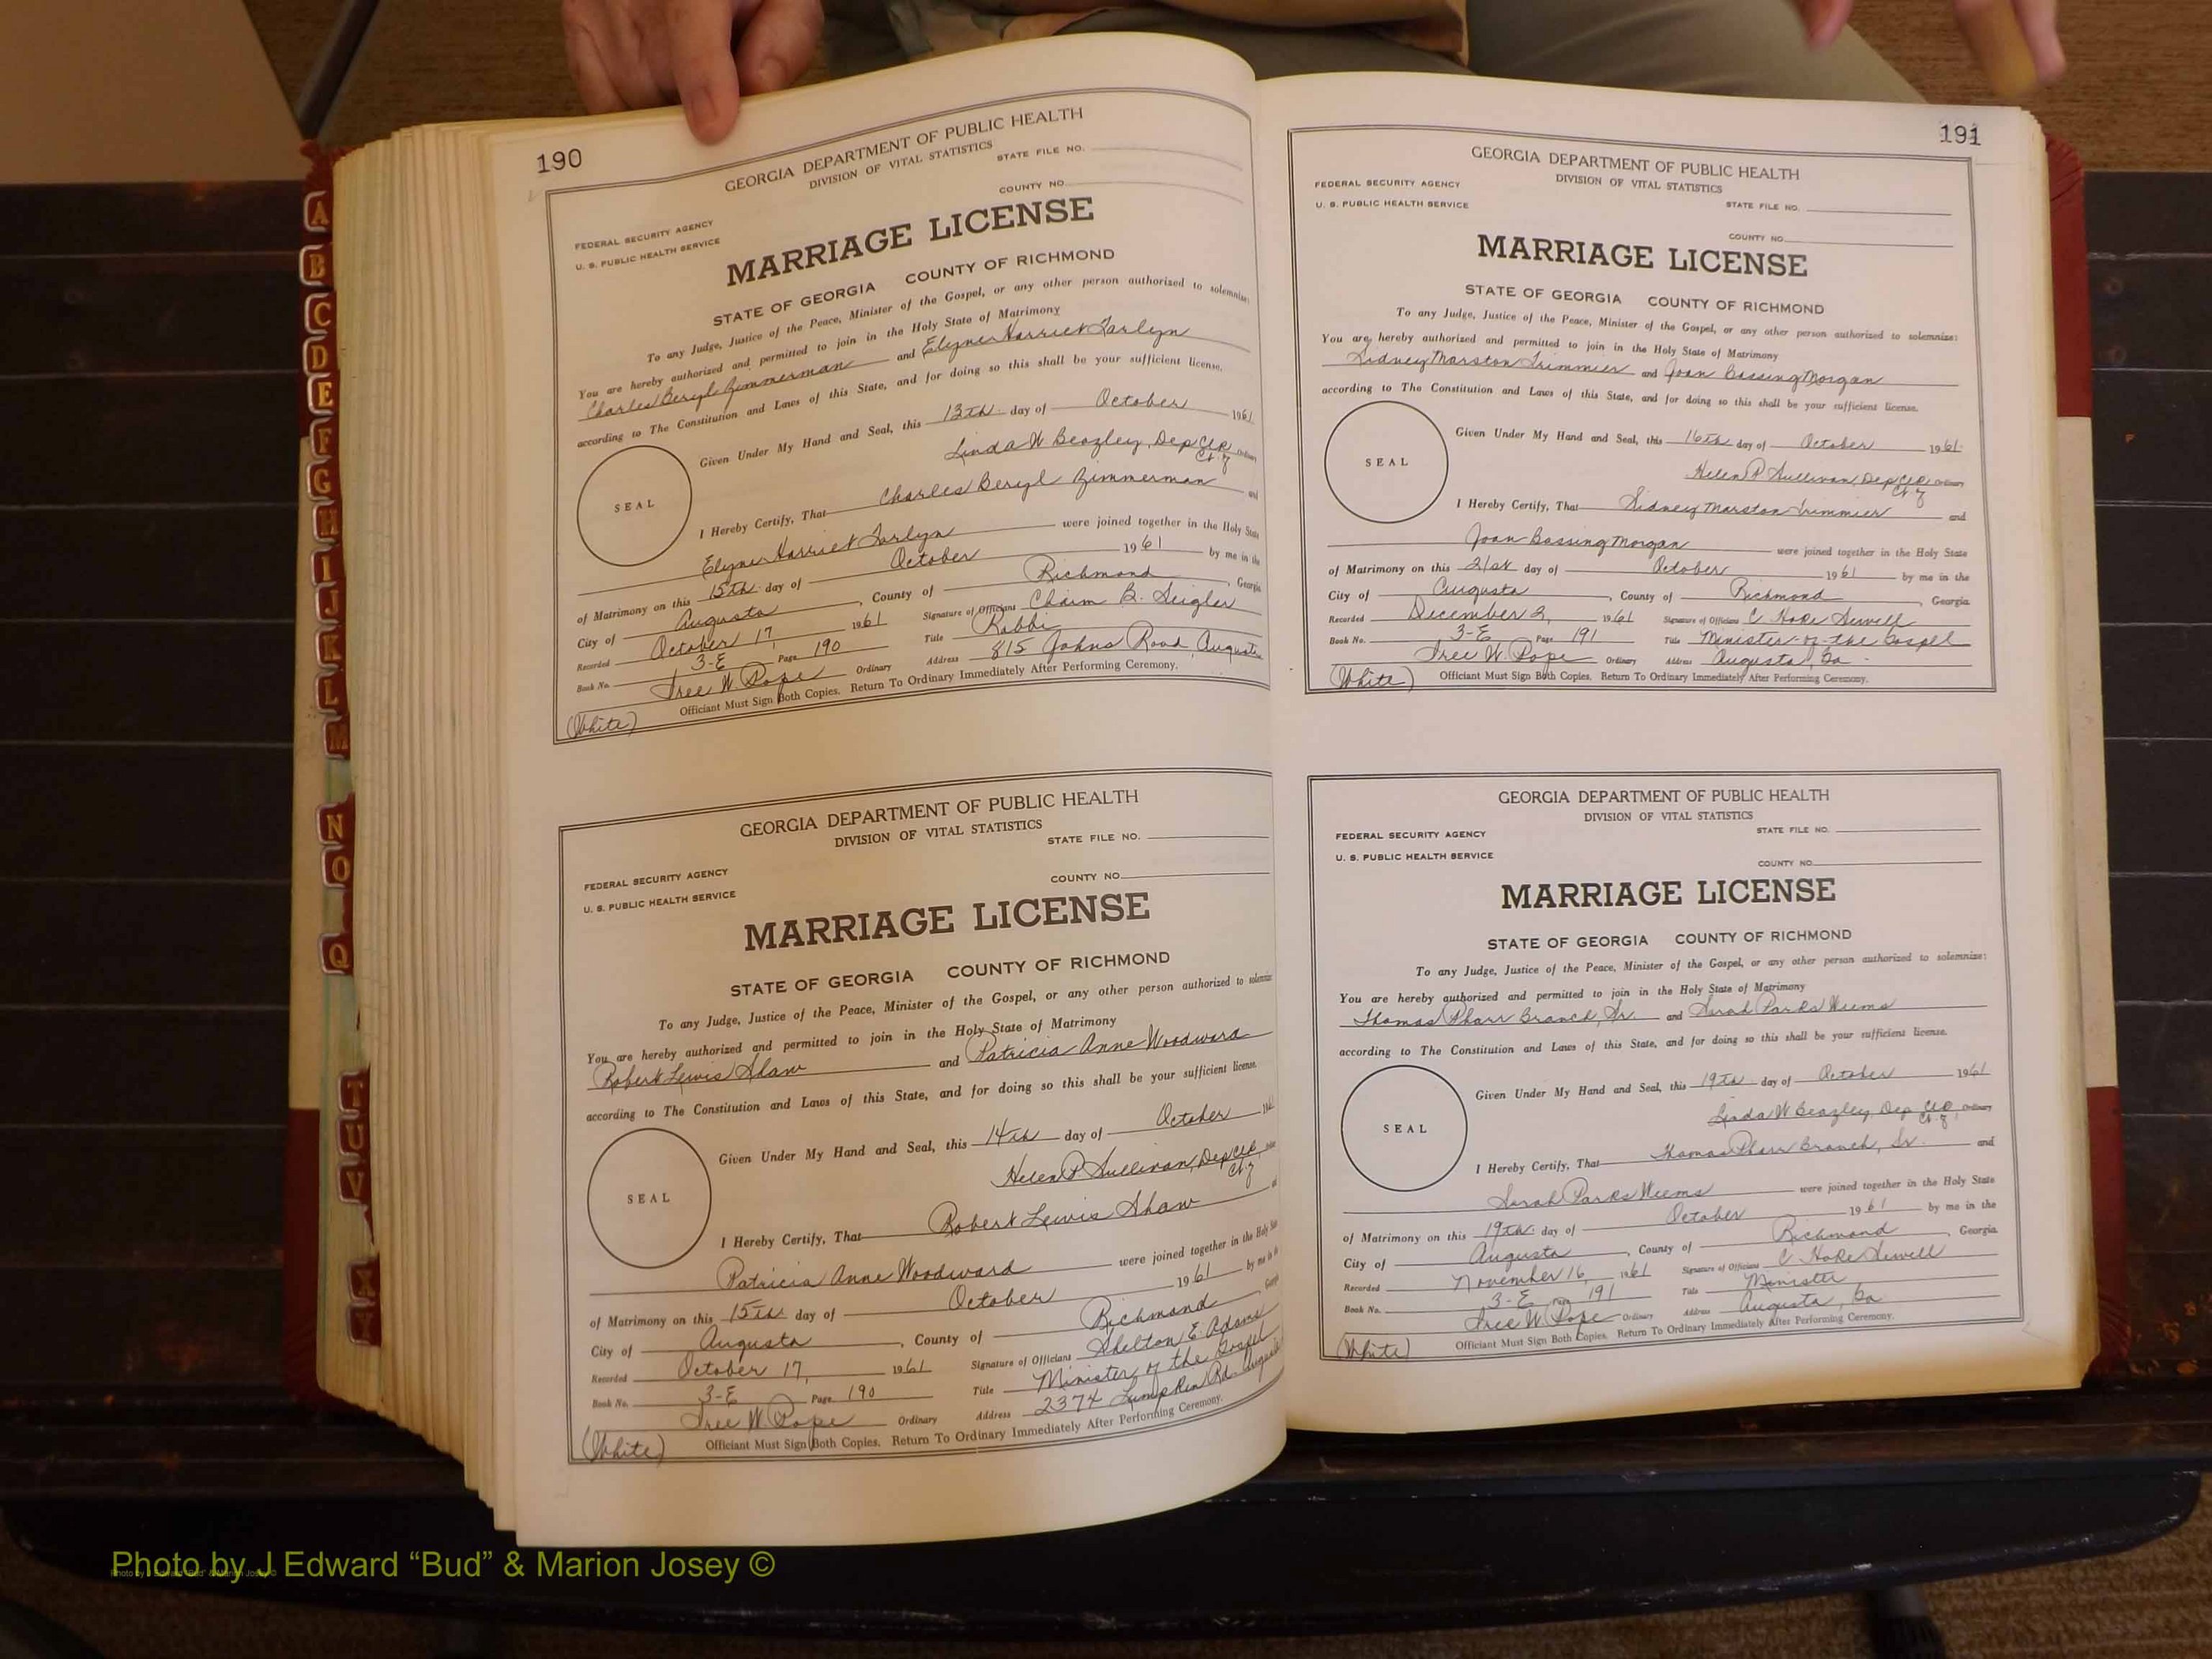 A
B
C
D
E
F
G
H
I
J
K
L
M
N
O
Q
T
U
V
X
Y
190
GEORGIA DEPARTMENT OF PUBLIC HEALTH
DIVISION OF VITAL STATISTICS
STATE FILE NO.
COUNTY NO.
FEDERAL SECURITY AGENCY
U. S. PUBLIC HEALTH SERVICE
MARRIAGE LICENSE
STATE OF GEORGIA COUNTY OF RICHMOND
To any Judge, Justice of the Peace, Minister of the Gospel, or any other person authorized to solemnize:
You are hereby authorized and permitted to join in the Holy State of Matrimony
Charles Beryl Zimmerman and Elyne Harriet Tarlyn
according to The Constitution and Laws of this State, and for doing so this shall be your sufficient license.
Given Under My Hand and Seal, this 13th day of October 1961
Linda W Beazley, Dep Clk Ordinary
Ct. of
SEAL
I Hereby Certify, That Charles Beryl Zimmerman and
Elyne Harriet Tarlyn were joined together in the Holy State
of Matrimony on this 15th day of October 1961 by me in the
City of Augusta, County of Richmond, Georgia
Recorded October 17, 1961 Signature of Officiant Chaim B. Seigler
Book No. 3-E Page 190 Title Rabbi
Tree W. Pope Ordinary Address 815 Johns Road, Augusta
Officiant Must Sign Both Copies. Return To Ordinary Immediately After Performing Ceremony.
(White)
GEORGIA DEPARTMENT OF PUBLIC HEALTH
DIVISION OF VITAL STATISTICS
STATE FILE NO.
FEDERAL SECURITY AGENCY
COUNTY NO.
U. S. PUBLIC HEALTH SERVICE
MARRIAGE LICENSE
STATE OF GEORGIA COUNTY OF RICHMOND
To any Judge, Justice of the Peace, Minister of the Gospel, or any other person authorized to solemnize
You are hereby authorized and permitted to join in the Holy State of Matrimony
Robert Lewis Shaw and Patricia Anne Woodward
according to The Constitution and Laws of this State, and for doing so this shall be your sufficient license.
Given Under My Hand and Seal, this 14th day of October 1961
Helen P. Sullivan, Dep Clk
Ct. of
SEAL
I Hereby Certify, That Robert Lewis Shaw
Patricia Anne Woodward were joined together in the Holy State
of Matrimony on this 15th day of October 1961 by me in the
City of Augusta, County of Richmond, Georgia
Recorded October 17, 1961 Signature of Officiant Shelton E. Adams
Book No. 3-E Page 190 Title Minister of the Gospel
Tree W. Pope Ordinary Address 2374 Lumpkin Rd. Augusta
(White) Officiant Must Sign Both Copies. Return To Ordinary Immediately After Performing Ceremony.
191
GEORGIA DEPARTMENT OF PUBLIC HEALTH
DIVISION OF VITAL STATISTICS
FEDERAL SECURITY AGENCY
U. S. PUBLIC HEALTH SERVICE
STATE FILE NO.
COUNTY NO.
MARRIAGE LICENSE
STATE OF GEORGIA COUNTY OF RICHMOND
To any Judge, Justice of the Peace, Minister of the Gospel, or any other person authorized to solemnize:
You are hereby authorized and permitted to join in the Holy State of Matrimony
Sidney Marston Trimmier and Joan Bassing Morgan
according to The Constitution and Laws of this State, and for doing so this shall be your sufficient license.
Given Under My Hand and Seal, this 16th day of October 1961
Helen P. Sullivan, Dep Clk Ordinary
Ct. of
SEAL
I Hereby Certify, That Sidney Marston Trimmier and
Joan Bassing Morgan were joined together in the Holy State
of Matrimony on this 21st day of October 1961 by me in the
City of Augusta, County of Richmond, Georgia
Recorded December 2, 1961 Signature of Officiant C Hoke Sewell
Book No. 3-E Page 191 Title Minister of the Gospel
Tree W. Pope Ordinary Address Augusta, Ga.
(White) Officiant Must Sign Both Copies. Return To Ordinary Immediately After Performing Ceremony.
GEORGIA DEPARTMENT OF PUBLIC HEALTH
DIVISION OF VITAL STATISTICS
FEDERAL SECURITY AGENCY
STATE FILE NO.
U. S. PUBLIC HEALTH SERVICE
COUNTY NO.
MARRIAGE LICENSE
STATE OF GEORGIA COUNTY OF RICHMOND
To any Judge, Justice of the Peace, Minister of the Gospel, or any other person authorized to solemnize:
You are hereby authorized and permitted to join in the Holy State of Matrimony
Thomas Pharr Branch, Sr. and Sarah Parks Weems
according to The Constitution and Laws of this State, and for doing so this shall be your sufficient license.
Given Under My Hand and Seal, this 19th day of October 1961
Linda W Beazley, Dep Clk Ordinary
Ct. of
SEAL
I Hereby Certify, That Thomas Pharr Branch, Sr. and
Sarah Parks Weems were joined together in the Holy State
of Matrimony on this 19th day of October 1961 by me in the
City of Augusta, County of Richmond, Georgia
Recorded November 16, 1961 Signature of Officiant C Hoke Sewell
Book No. 3-E Page 191 Title Minister
Tree W. Pope Ordinary Address Augusta, Ga
(White) Officiant Must Sign Both Copies. Return To Ordinary Immediately After Performing Ceremony.
Photo by J Edward "Bud" & Marion Josey ©
Photo by J Edward "Bud" & Marion Josey ©